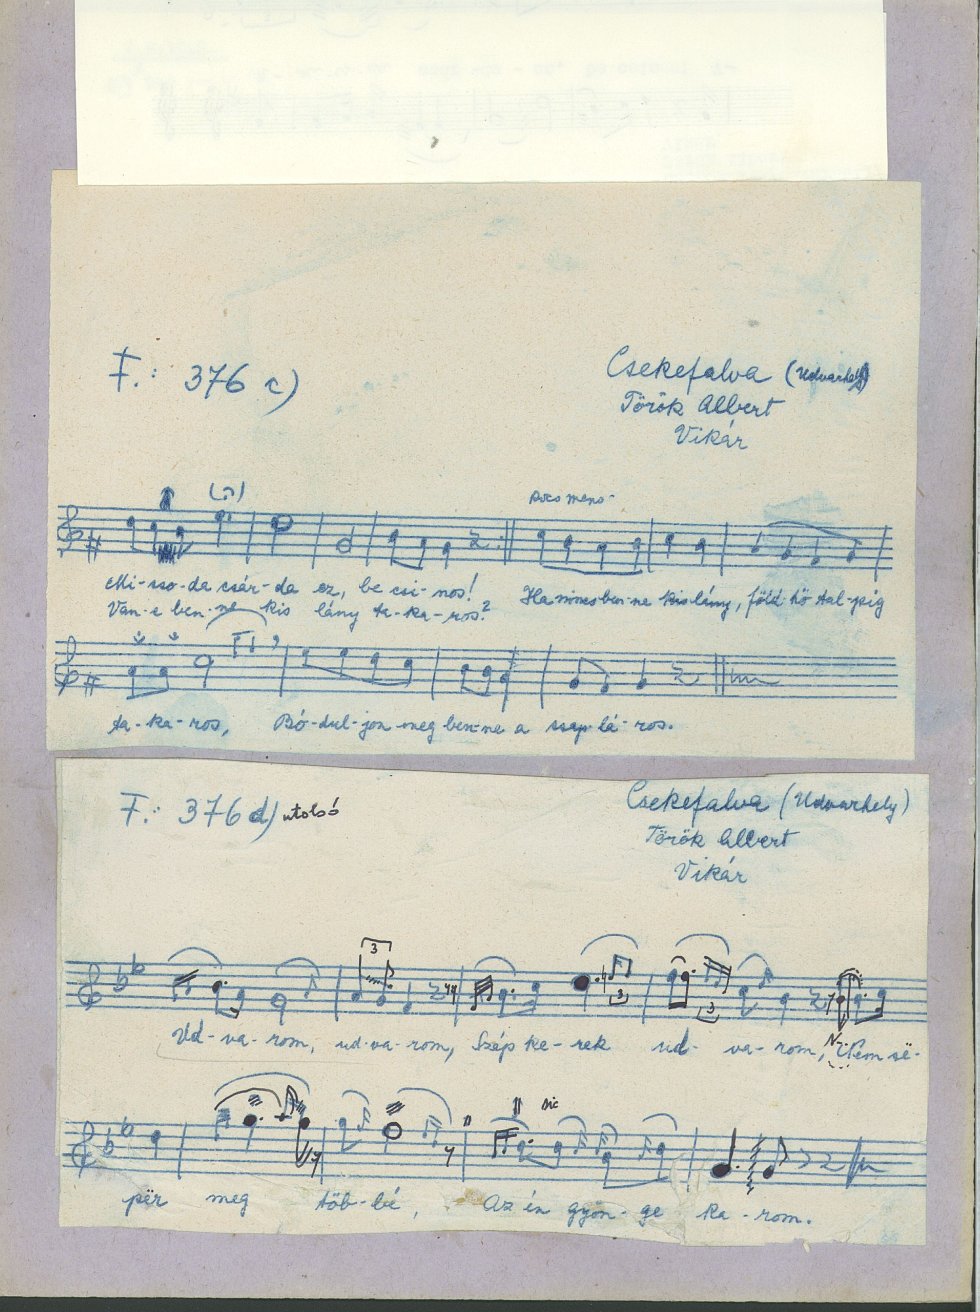 F.: 376 c)
Csekefalva (Udvarhely)
Török Albert
Vikár
Poco meno
Mi-cso-da csár-da ez, be csi-nos! Ha nincs ben-ne kis lány, föld-hö tal-pig
Van-e ben-ne kis lány ta-ka-ros?
ta-ka-ros, Bó-dul-jon meg ben-ne a csap-lá-ros.
F.: 376 d) utolsó
Csekefalva (Udvarhely)
Török Albert
Vikár
3
3
3
Ud-va-rom, ud-va-rom, Szép ke-rek ud-va-rom, Nem së-
sic
për meg töb-bé, Az én gyön-ge ka-rom.